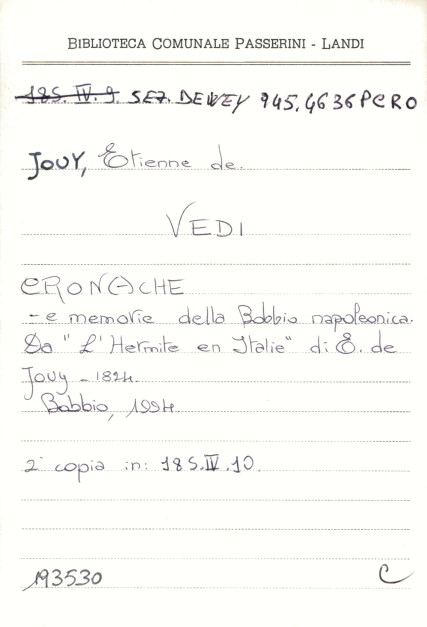 BIBLIOTECA COMUNALE PASSERINI - LANDI
18S. IV. 9. SEZ. DEWEY 945.4636 PCRO
JOUY, Etienne de.
VEDI
CRON(A)CHE
- e memorie della Bobbio napoleonica.
Da "L'Hermite en Italie" di E. de
Jouy - 1824.
Bobbio, 1994.
2ª copia in: 18S.IV.10.
193530 C